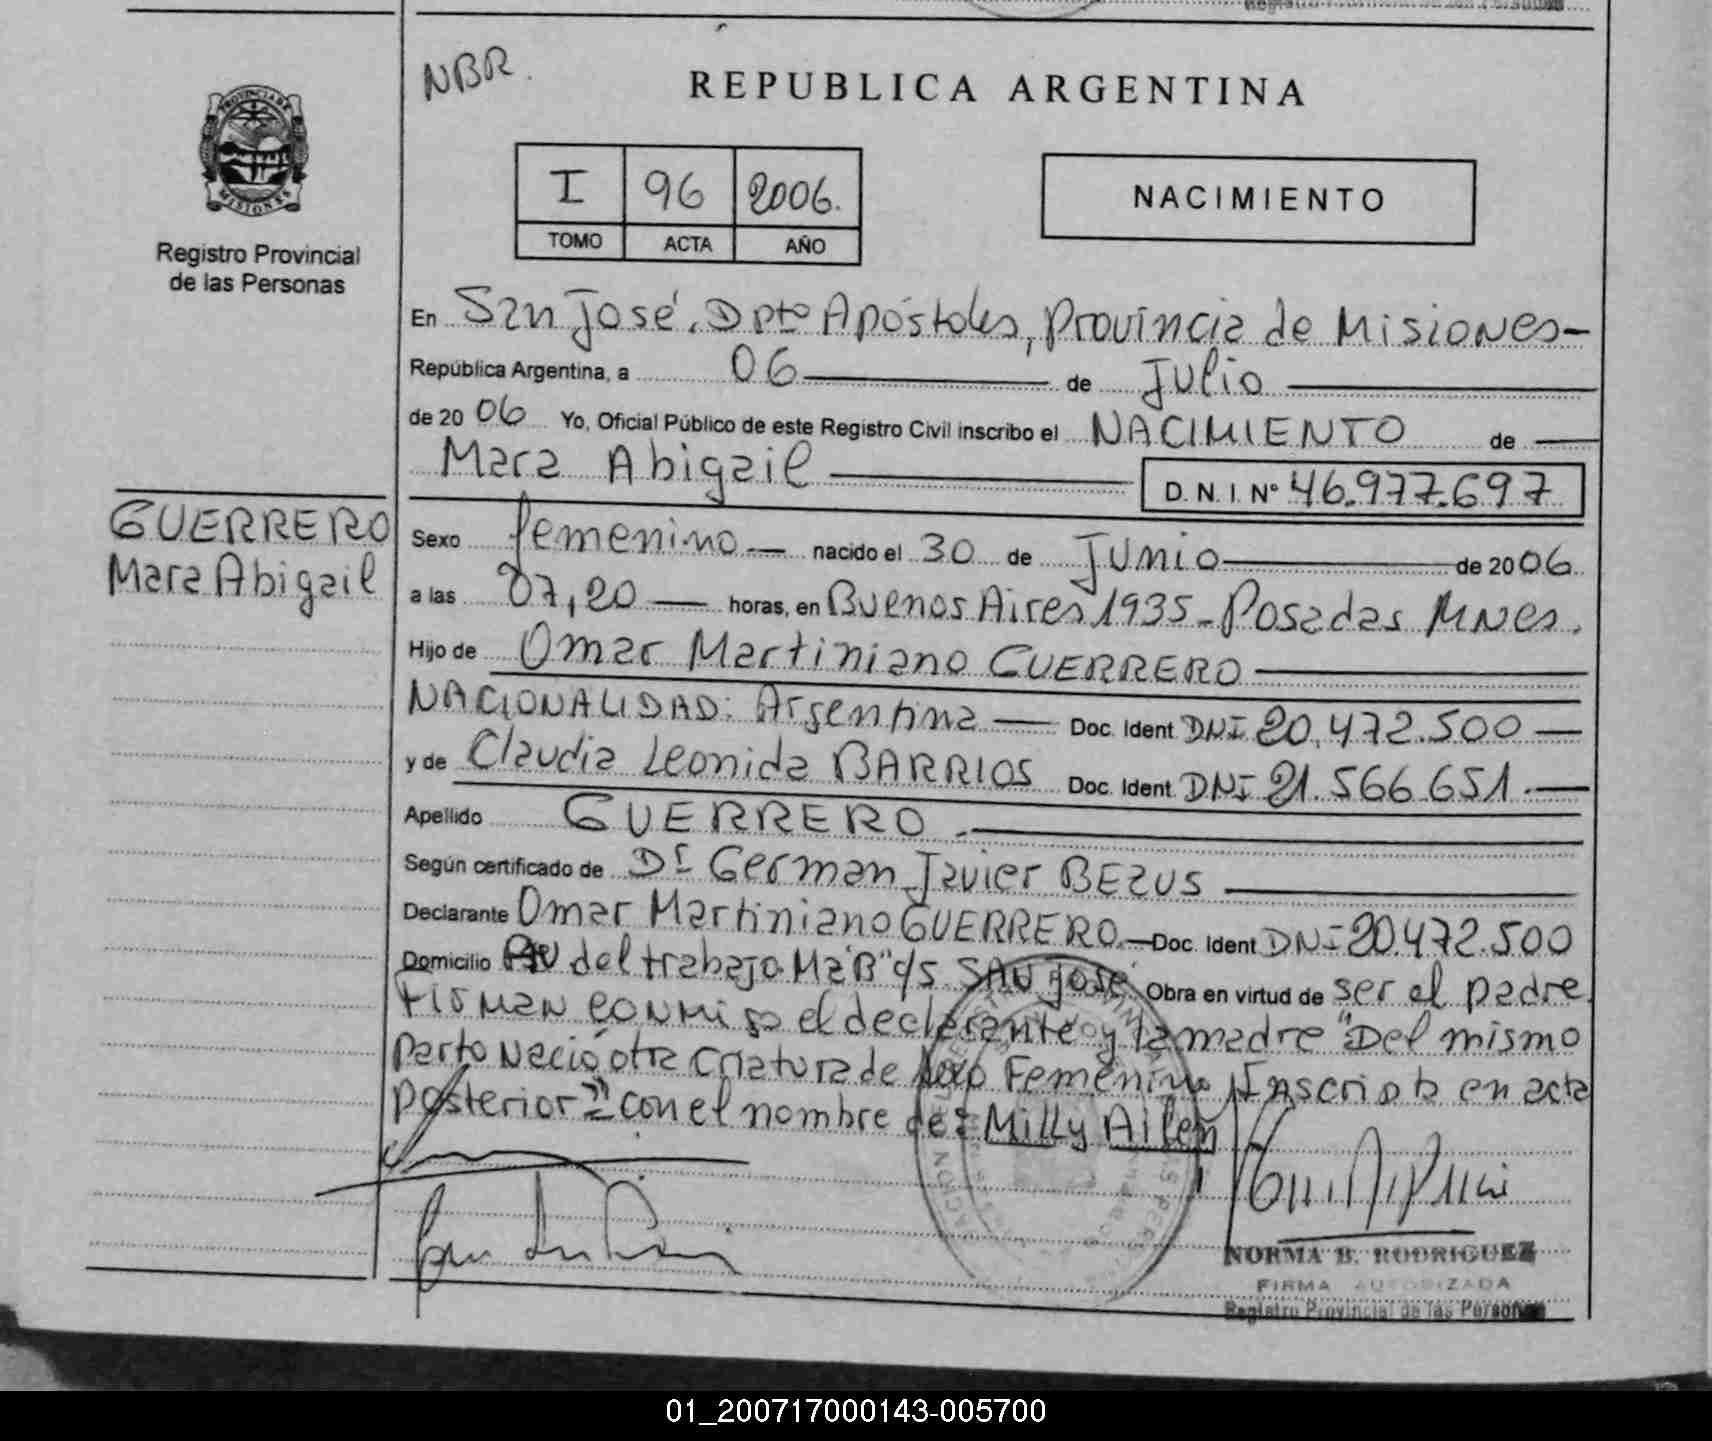 NBR.
REPUBLICA ARGENTINA
PROVINCIA DE
MISIONES
Registro Provincial
de las Personas
I 96 2006.
TOMO ACTA AÑO
NACIMIENTO
En San José. Dpto Apóstoles, Provincia de Misiones-
República Argentina, a 06 de Julio
de 2006 Yo, Oficial Público de este Registro Civil inscribo el NACIMIENTO de
Mara Abigail D. N. I. Nº 46.977.697
GUERRERO
Mara Abigail
Sexo femenino nacido el 30 de Junio de 2006
a las 07,20 horas, en Buenos Aires 1935- Posadas Mnes.
Hijo de Omar Martiniano GUERRERO
NACIONALIDAD: Argentina Doc. Ident DNI 20.472.500
y de Claudia Leonida BARRIOS Doc. Ident. DNI 21.566.651.
Apellido GUERRERO.
Según certificado de Dr German Javier BEZUS
Declarante Omar Martiniano GUERRERO. Doc. Ident DNI 20.472.500
Domicilio Av del trabajo Mz"B" c/s SAN José Obra en virtud de ser el padre.
Firman conmigo el declarante y la madre "Del mismo
parto Nació otra criatura de sexo Femenino Inscripta en acta
posterior" con el nombre de: Milly Ailen
NORMA B. RODRIGUEZ
FIRMA AUTORIZADA
Registro Provincial de las Personas
01_200717000143-005700